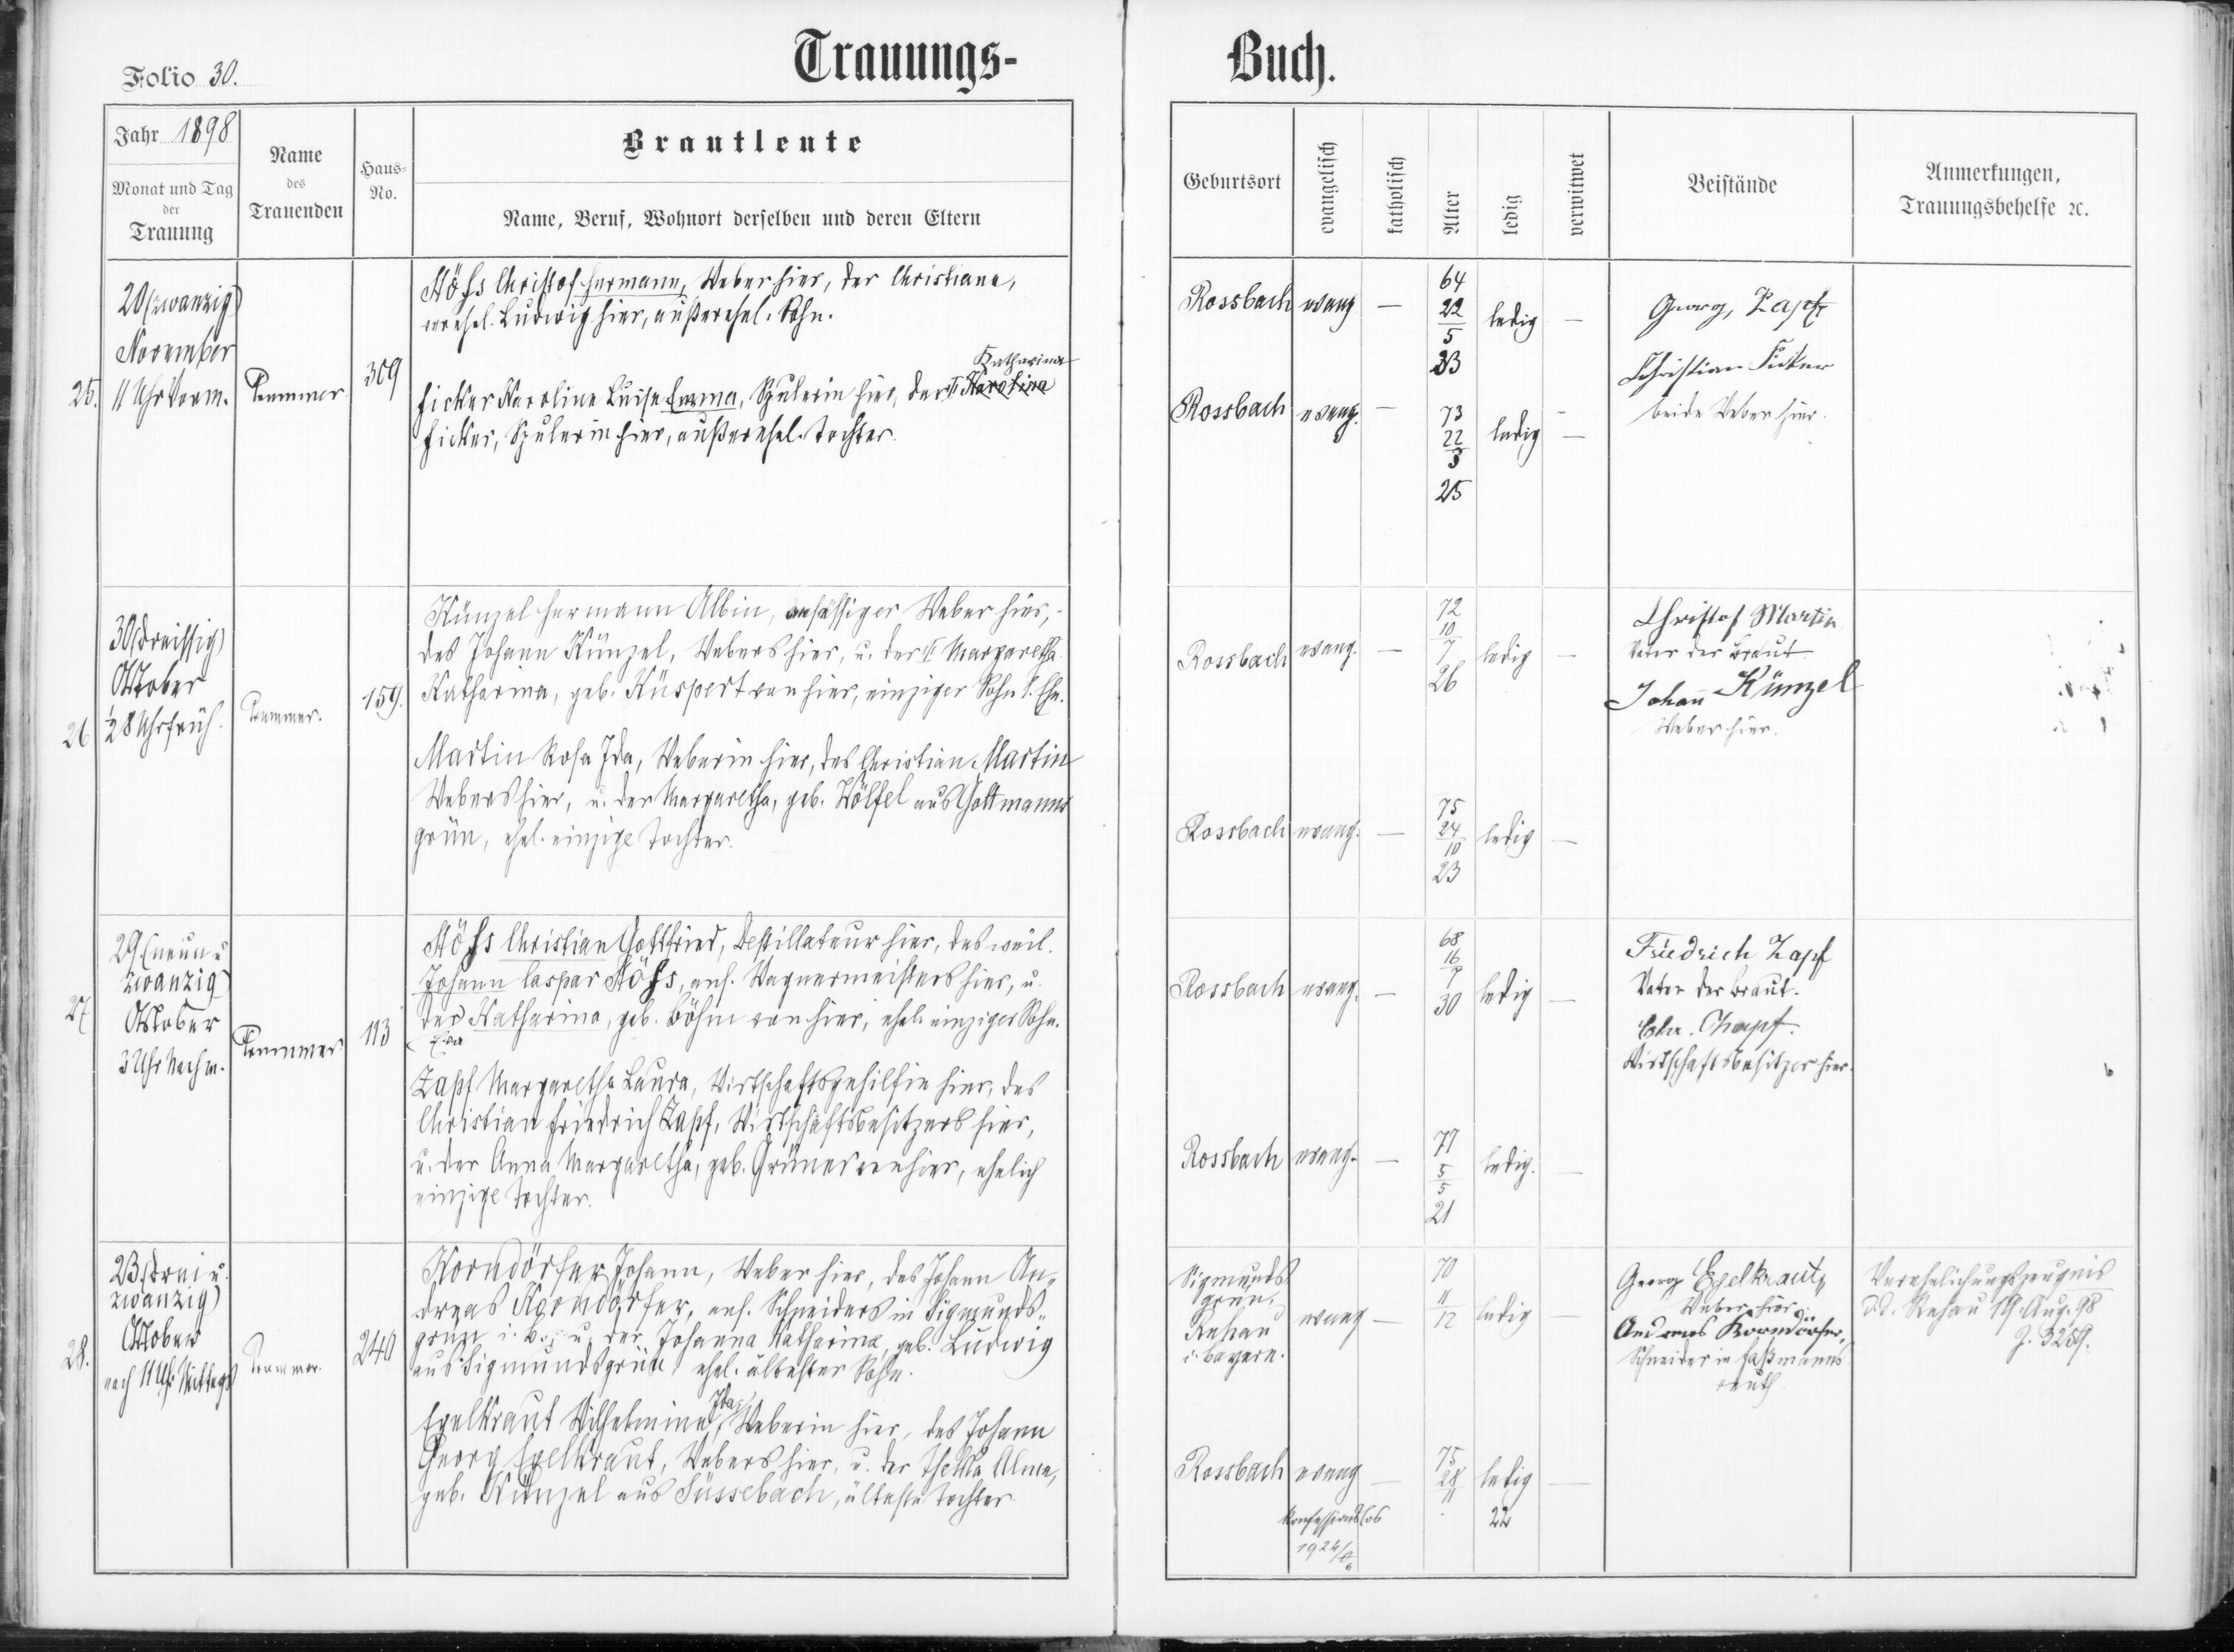 Folio 30.
Trauungs-
Buch.
Jahr 1898
Monat und Tag
der
Trauung
Name
des
Trauenden
Haus-
No.
Brautleute
Name, Beruf, Wohnort derselben und deren Eltern
Geburtsort
evangelisch
katholisch
Alter
ledig
verwitwet
Beistände
Anmerkungen,
Trauungsbehelfe ꝛc.
25.
20 (zwanzig)
November
11 Uhr Vorm.
309
Stöhs Christof Hermann, Weber hier, der Christiane,
verehel. Ludwig hier, außerehel. Sohn.
Katharina
Ficker Karoline Luise Emma, Spulerin hier, der II Karolina
Ficker, Spulerin hier, außerehel. Tochter.
Rossbach evang — 64 22/5 33 ledig —
Rossbach evang. — 73 22/3 25 ledig —
Georg, Zapf
Christian Ficker
beide Weber hier.
26
30 (dreissig)
Oktober
½ 8 Uhr früh.
159.
Künzel Hermann Albin, ansässiger Weber hier,
des Johann Künzel, Webers hier, u. der II Margaretha
Katharina, geb. Küspert von hier, einziger Sohn I. Ehe.
Martin Rosa Ida, Weberin hier, des Christian Martin
Webers hier, u. der Margaretha, geb. Wölfel aus Gottmanns
grün, ehel. einzige Tochter.
Rossbach evang. — 72 10/7 26 ledig —
Rossbach evang. — 75 24/10 23 ledig —
Christof Martin
Vater der Braut
Johann Künzel
Weber hier.
27
29. (neun u.
zwanzig)
Oktober
3 Uhr Nachm.
113
Stöhs Christian Gottfried, Destillateur hier, des weil.
Johann Caspar Stöhs, ans. Wagnermeisters hier, u.
der Katharina, geb. Böhm von hier, ehel. einziger Sohn.
Eva
Zapf Margaretha Laura, Wirtschaftsgehilfin hier, des
Christian Friedrich Zapf, Wirtschaftsbesitzers hier,
u. der Anna Margaretha, geb. Grüner von hier, ehelich
einzige Tochter.
Rossbach evang. — 68 16/7 30 ledig —
Rossbach evang. — 77 5/5 21 ledig. —
Friedrich Zapf
Vater der Braut.
Wirtschaftsbesitzer hier.
28.
23. (drei u.
zwanzig)
Oktober
nach 11 Uhr Mittags
240
Korndörfer Johann, Weber hier, des Johann An-
dreas Korndörfer, ans. Schneiders in Sigmunds-
grün i. B., u. der Johanna Katharina, geb. Ludwig
aus Sigmundsgrün, ehel. ältester Sohn.
Ida,
Egelkraut Wilhelmine, Weberin hier, des Johann
Georg Egelkraut, Webers hier, u. der Thekla Alma,
geb. Künzel aus Süssebach, älteste Tochter.
Sigmunds
grün,
Rehau
i. Bayern.
evang — 70 11/12 ledig —
Rossbach evang — 75 28/11 ledig —
22
konfessionslos
1924
Georg Egelkraut,
Weber hier.
Andreas Korndörfer,
Schneider in Faßmanns
reuth.
Verehelichungszeugnis
d.d. Rehau 19. Aug. 98
Z. 3289.